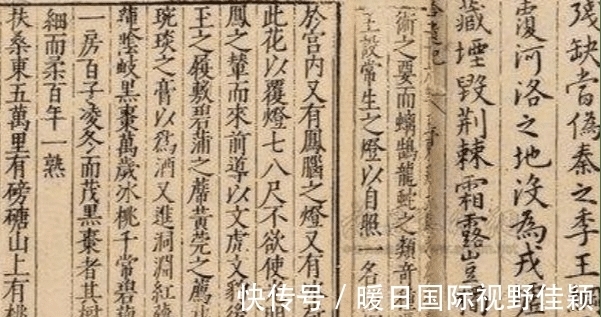 殘缺當偽秦之季王綱
覆河洛之地沒為戎
藏堙毀荊棘霜露豈
術之要而螭鵠龍蛇之類奇
王設常生之燈以自照一名
於宮内又有鳳腦之燈又有
此花以覆燈七八尺不欲使
鳳之輦而來前導以文虎文豹後
王之履敷碧蒲之蓆黃莞之薦
琬琰之膏以爲酒又進洞淵紅
陰岐黑棗萬歲冰桃千常碧藕
一房百子凌冬而茂黑棗者其樹
細而柔百年一熟
扶桑東五萬里有磅磄山上有桃
快传号 / 暖日国际视野佳颖